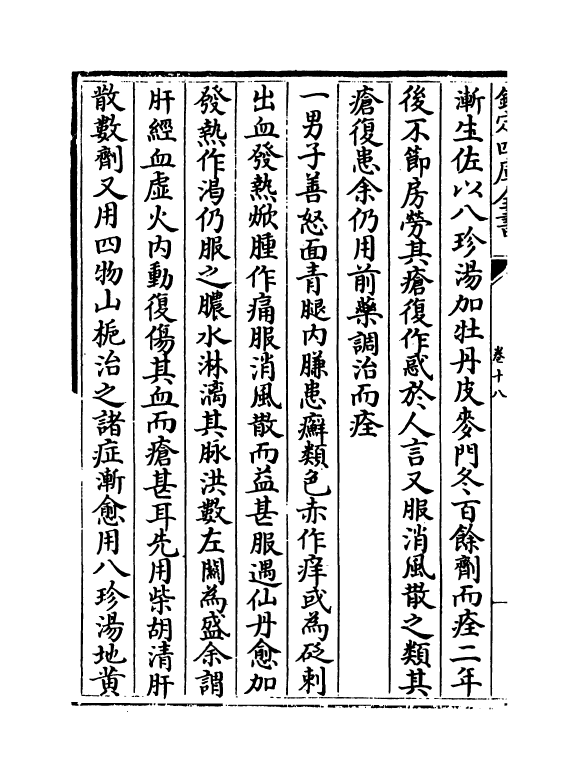 欽定四庫全書
卷十八
漸生佐以八珍湯加牡丹皮麥門冬百餘劑而痊二年
後不節房勞其瘡復作惑於人言又服消風散之類其
瘡復患余仍用前藥調治而痊
一男子善怒面青腿內臁患癬類色赤作痒或為砭刺
出血發熱焮腫作痛服消風散而益甚服遇仙丹愈加
發熱作渴仍服之膿水淋漓其脉洪數左關為盛余謂
肝經血虛火內動復傷其血而瘡甚耳先用柴胡清肝
散數劑又用四物山梔治之諸症漸愈用八珍湯地黄